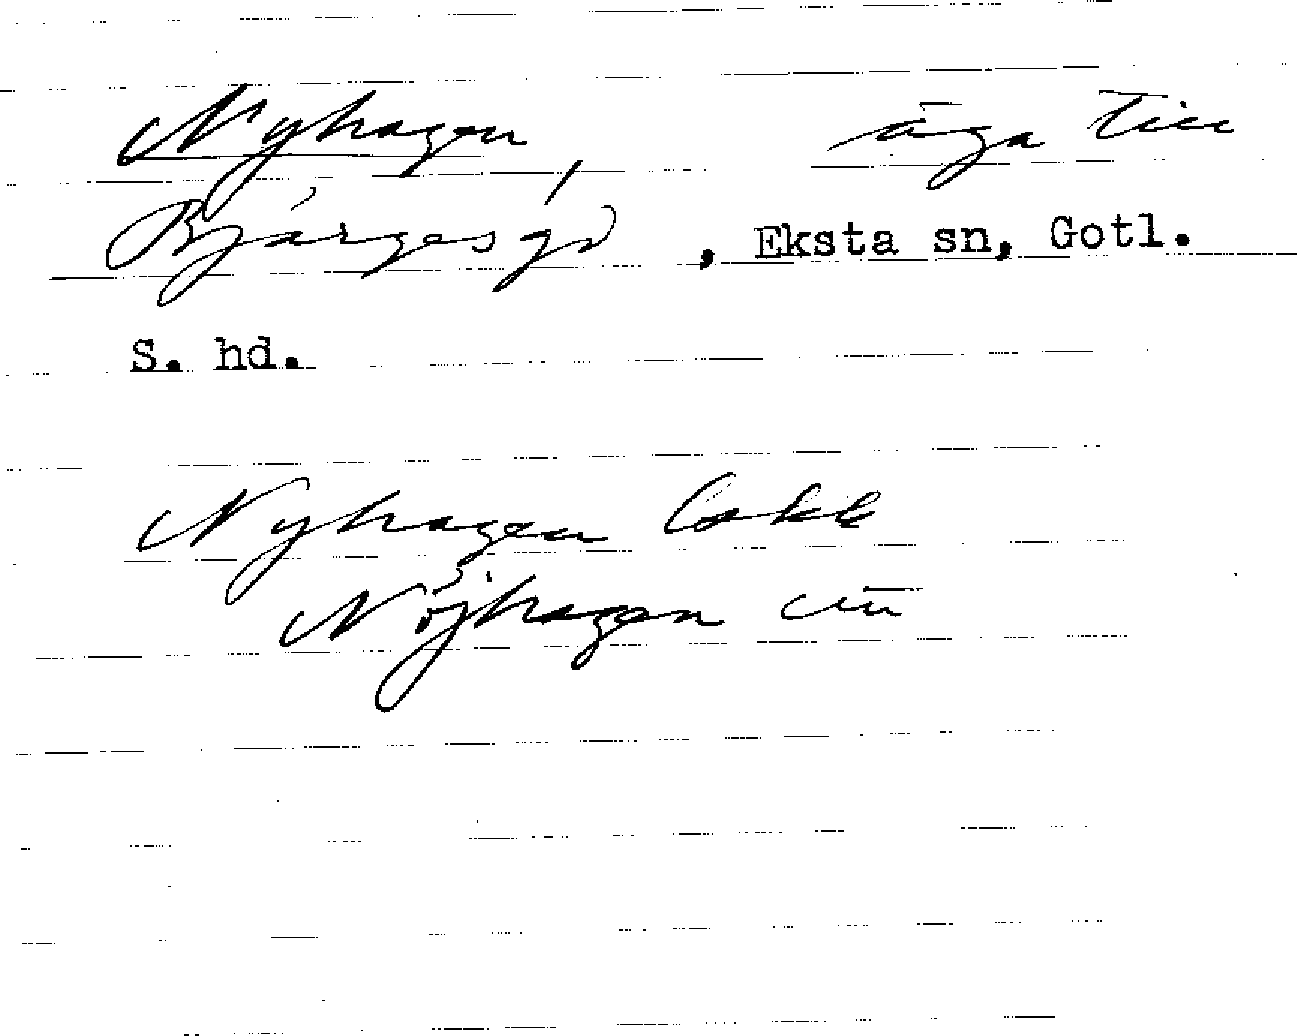 Nyhagen äga till
Bjärges gd, Eksta sn, Gotl.
S. hd.
Nyhagen Lokk
Nöjhagen utt